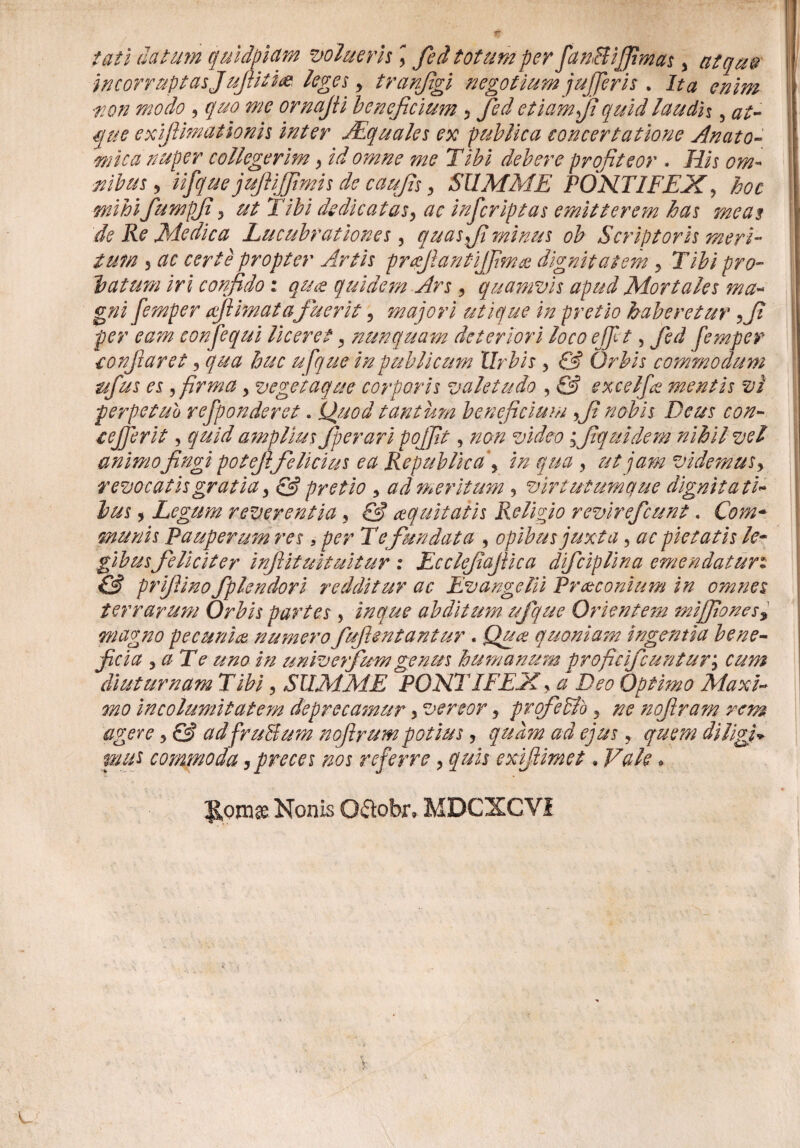 tati datum quidpiam volueris ; ſed totum per ſanctiſſimas , atque
incorruptas Juſtitiæ leges , tranſigi negotium juſſeris . Ita enim
non modo , quo me ornaſti beneficium , ſed etiam , ſi quid laudis , at-
que exiſtimationis inter Æquales ex publica concertatione Anato-
mica nuper collegerim , id omne me Tibi debere profiteor . His om-
nibus , iiſque juſtiſſimis de cauſis , SUMME PONTIFEX , hoc
mihi ſumpſi , ut Tibi dedicatas , ac inſcriptas emitterem has meas
de Re Medica Lucubrationes , quas , ſi minus ob Scriptoris meri-
tum , ac certè propter Artis præſtantiſſimæ dignitatem , Tibi pro-
batum iri confido : quæ quidem Ars , quamvis apud Mortales ma-
gni ſemper æſtimata fuerit , majori utique in pretio haberetur , ſi
per eam conſequi liceret , nunquam deteriori loco eſſet , ſed ſemper
conſtaret , qua huc uſque in publicum Urbis , & Orbis commodum
uſus es , firma , vegetaque corporis valetudo , & excelſæ mentis vi
perpetuò reſponderet . Quod tantùm beneficium , ſi nobis Deus con-
ceſſerit , quid amplius ſperari poſſit , non video ; ſiquidem nihil vel
animo fingi poteſt felicius ea Republica , in qua , ut jam videmus ,
revocatis gratia , & pretio , ad meritum , virtutumque dignitati-
bus , Legum reverentia , & æquitatis Religio revireſcunt . Com-
munis Pauperum res , per Te fundata , opibus juxta , ac pietatis le-
gibus feliciter inſtituituitur : Eccleſiaſtica diſciplina emendatur :
& priſtino ſplendori redditur ac Evangelii Præconium in omnes
terrarum Orbis partes , inque abditum uſque Orientem miſſiones ,
magno pecuniæ numero ſuſtentantur . Quæ quoniam ingentia bene-
ficia , a Te uno in univerſum genus humanum proficiſcuntur ; cum
diuturnam Tibi , SUMME PONTIFEX , a Deo Optimo Maxi-
mo incolumitatem deprecamur , vereor , profectò , ne noſtram rem
agere , & ad fructum noſtrum potius , quàm ad ejus , quem diligi-
mus commoda , preces nos referre , quis exiſtimet . Vale .
Romæ Nonis Octobr. MDCXCVI